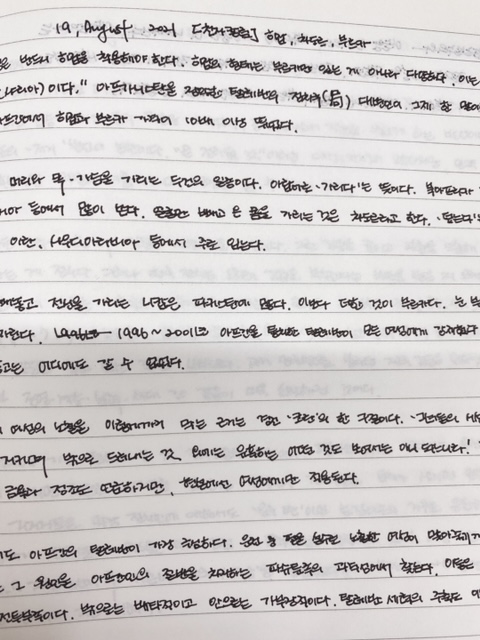 19, August 2021 [천자칼럼] 히잡, 차도르, 부르카
은 반드시 히잡을 착용해야 한다. 히잡의 형태는 부르카만 있는 게 아니라 다양하다. 이는
(샤리아)이다." 아프가니스탄을 점령한 탈레반의 정치국(局) 대변인이 그제 한 말이
아프간에서 히잡과 부르카 가격이 10배 이상 뛰었다.
머리와 목·가슴을 가리는 두건의 일종이다. 아랍어로 '가리다'는 뜻이다. 북아프리카
아 등에서 많이 쓴다. 얼굴만 빼고 온 몸을 가리는 것은 차도르라고 한다. '덮는다'는
이란, 사우디아라비아 등에서 주로 입는다.
내놓고 전신을 가리는 니캅은 파키스탄에 많다. 이보다 더한 것이 부르카다. 눈 부
가린다. 1996~2001년 아프간을 통치한 탈레반이 모든 여성에게 강제했다
고는 어디에도 갈 수 없었다.
여성의 노출을 이렇게까지 막는 근거는 경전 '코란'의 한 구절이다. '그녀들의 시
지키며 밖으로 드러내는 것 외에는 유혹하는 어떤 것도 보여서는 아니 되느니라.'
금욕과 정조도 언급하지만, 현실에선 여성에게만 적용된다.
도 아프간의 탈레반이 가장 극심하다. 운전 중 팔을 노출한 여성이
그 원인을 아프간인의 절반을 차지하는 파슈툰족의 과격성에서 찾는다. 이들은
전투부족이다. 밖으로는 배타적이고 안으로는 가부장적이다. 탈레반 세력의 주축도